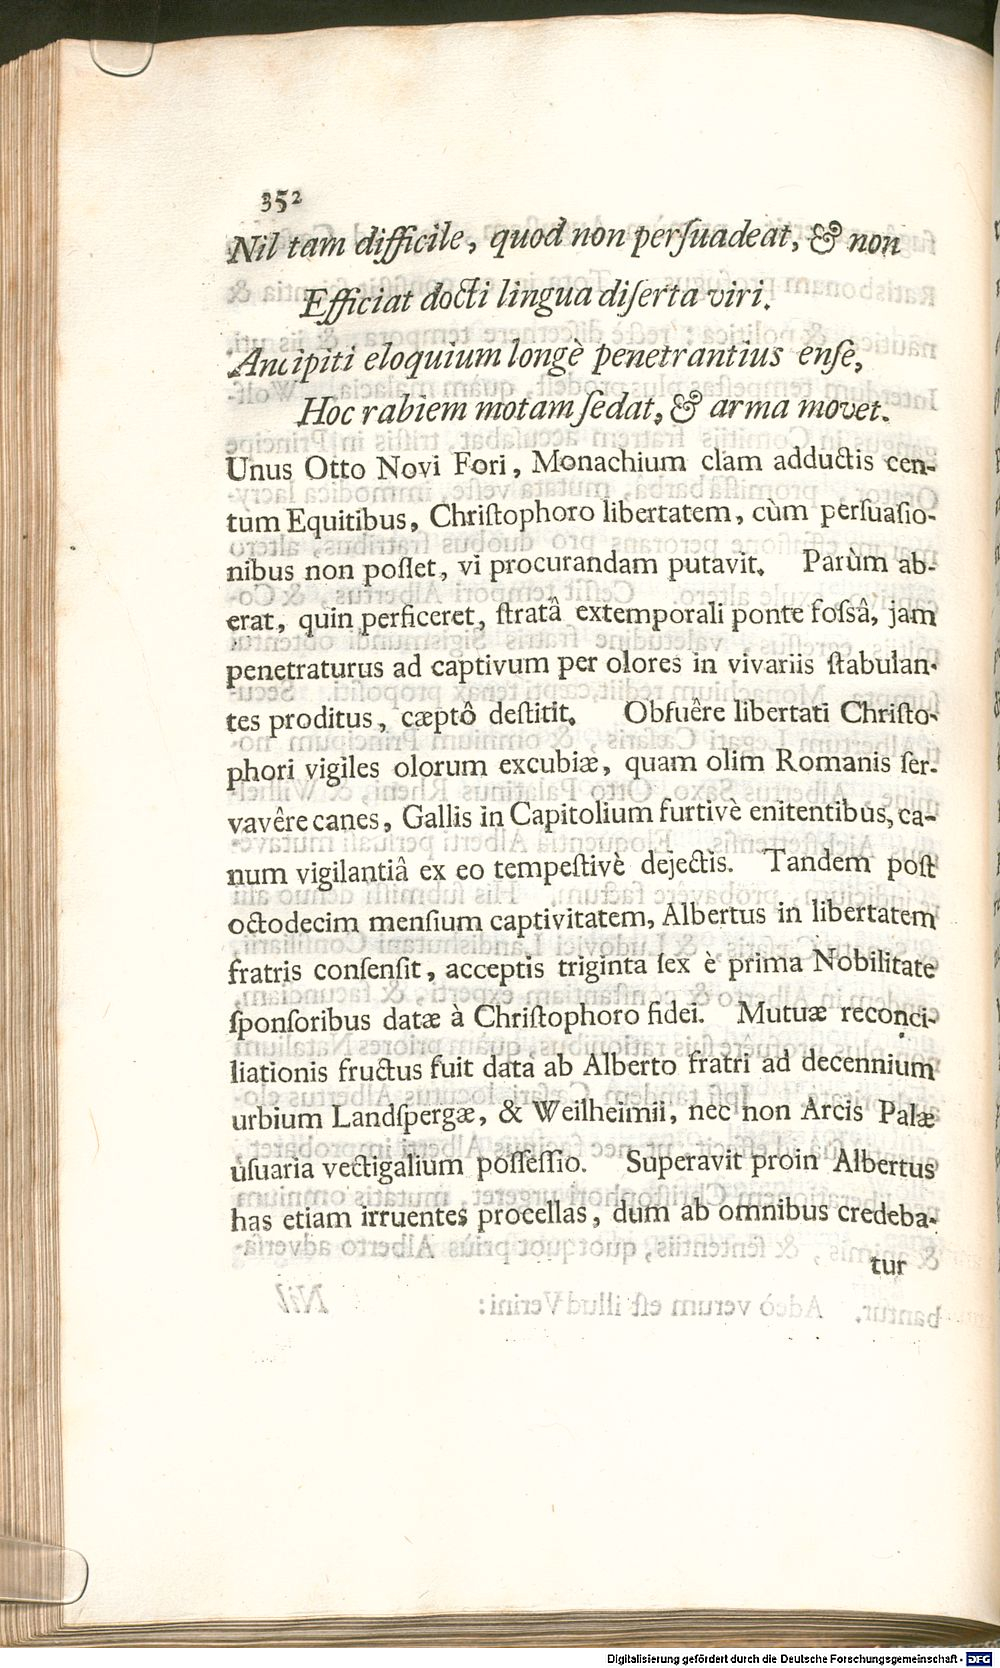 352
Nil tam difficile, quod non perſuadeat, & non
Efficiat docti lingua diſerta viri.
Ancipiti eloquium longè penetrantius enſe,
Hoc rabiem motam ſedat, & arma movet.
Unus Otto Novi Fori, Monachium clam adductis cen-
tum Equitibus, Chriſtophoro libertatem, cùm perſuaſio-
nibus non poſſet, vi procurandam putavit. Parùm ab-
erat, quin perficeret, ſtratâ extemporali ponte foſsâ, jam
penetraturus ad captivum per olores in vivariis ſtabulan-
tes proditus, cæptô deſtitit. Obfuêre libertati Chriſto-
phori vigiles olorum excubiæ, quam olim Romanis ſer-
vavêre canes, Gallis in Capitolium furtivè enitentibus, ca-
num vigilantiâ ex eo tempeſtivè dejectis. Tandem poſt
octodecim menſium captivitatem, Albertus in libertatem
fratris conſenſit, acceptis triginta ſex è prima Nobilitate
ſponſoribus datæ à Chriſtophoro fidei. Mutuæ reconci-
liationis fructus fuit data ab Alberto fratri ad decennium
urbium Landſpergæ, & Weilheimii, nec non Arcis Palæ
uſuaria vectigalium poſſeſſio. Superavit proin Albertus
has etiam irruentes procellas, dum ab omnibus credeba-
tur
Digitalisierung gefördert durch die Deutsche Forschungsgemeinschaft - DFG